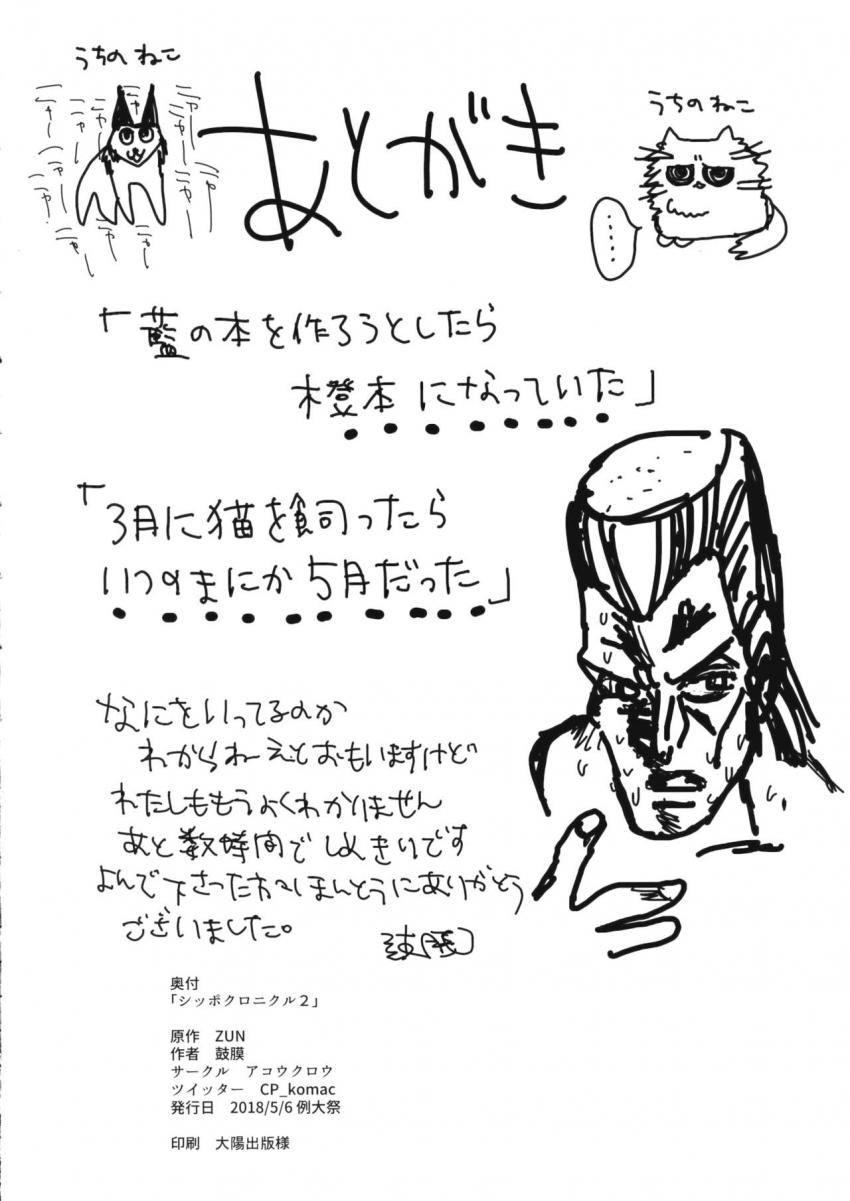 うちのねこ
あとがき
うちのねこ
……
「藍の本を作ろうとしたら
橙本になっていた」
「3月に猫を飼ったら
いつのまにか5月だった」
なにをいってるのか
わからねーえとおもいますけど
わたしももうよくわかりません
あと数時間でしめきりです
よんで下さった方〜ほんとうにありがとう
ございました。
奥付
「シッポクロニクル2」
原作　ZUN
作者　鼓膜
サークル　アコウクロウ
ツイッター　CP_komac
発行日　2018/5/6 例大祭
印刷　大陽出版様